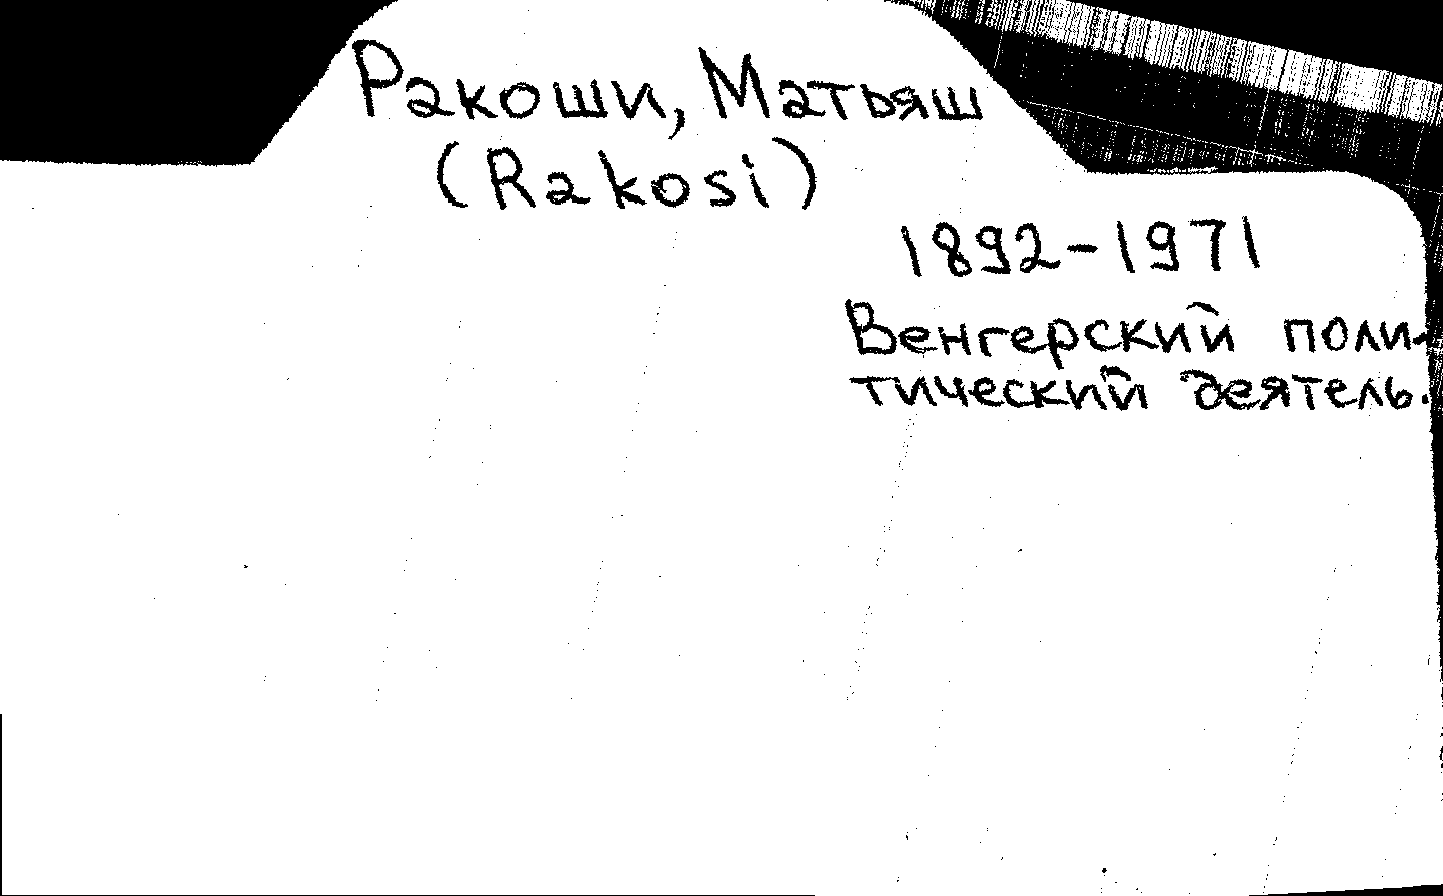 Ракоши, Матьяш
(Rakosi)
1892-1971
Венгерский поли-
тический деятель.